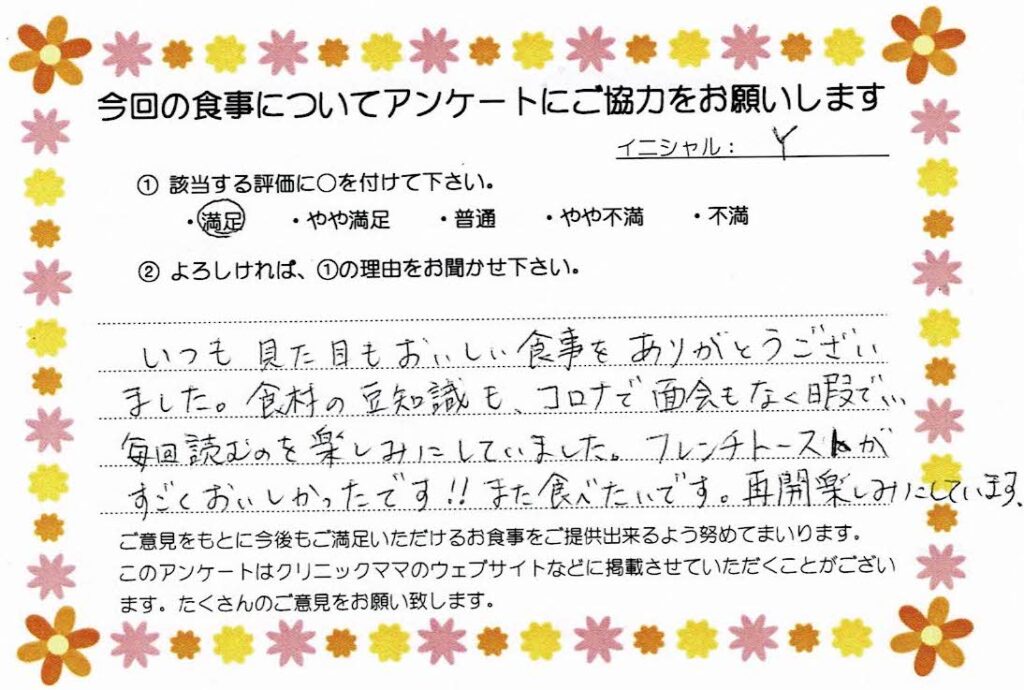 今回の食事についてアンケートにご協力をお願いします
イニシャル： Y
① 該当する評価に○を付けて下さい。
・満足 ・やや満足 ・普通 ・やや不満 ・不満
② よろしければ、①の理由をお聞かせ下さい。
いつも 見た目もおいしい食事を ありがとうござい
ました。食材の豆知識も、コロナで面会もなく暇で
毎回読むのを楽しみにしていました。フレンチトーストが
すごくおいしかったです!! また食べたいです。再開楽しみにしています、
ご意見をもとに今後もご満足いただけるお食事をご提供出来るよう努めてまいります。
このアンケートはクリニックママのウェブサイトなどに掲載させていただくことがござい
ます。たくさんのご意見をお願い致します。